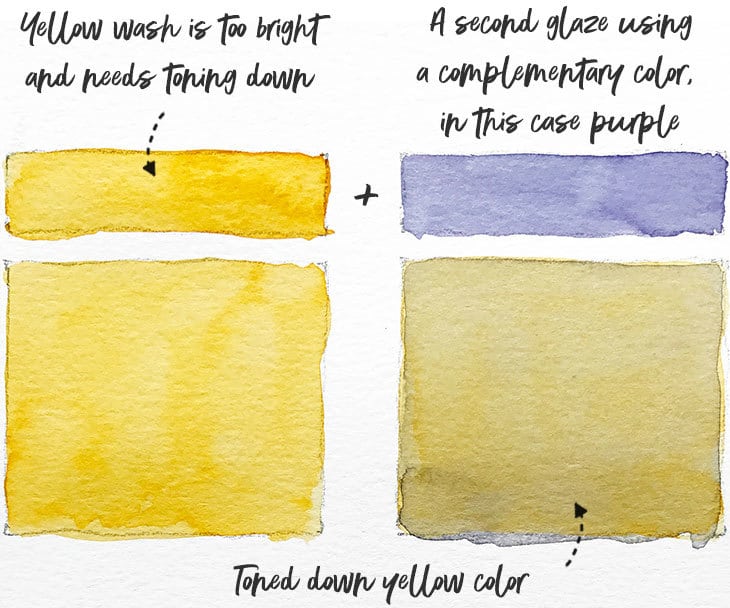 Yellow wash is too bright
and needs toning down
A second glaze using
a complementary color,
in this case purple
+
Toned down yellow color